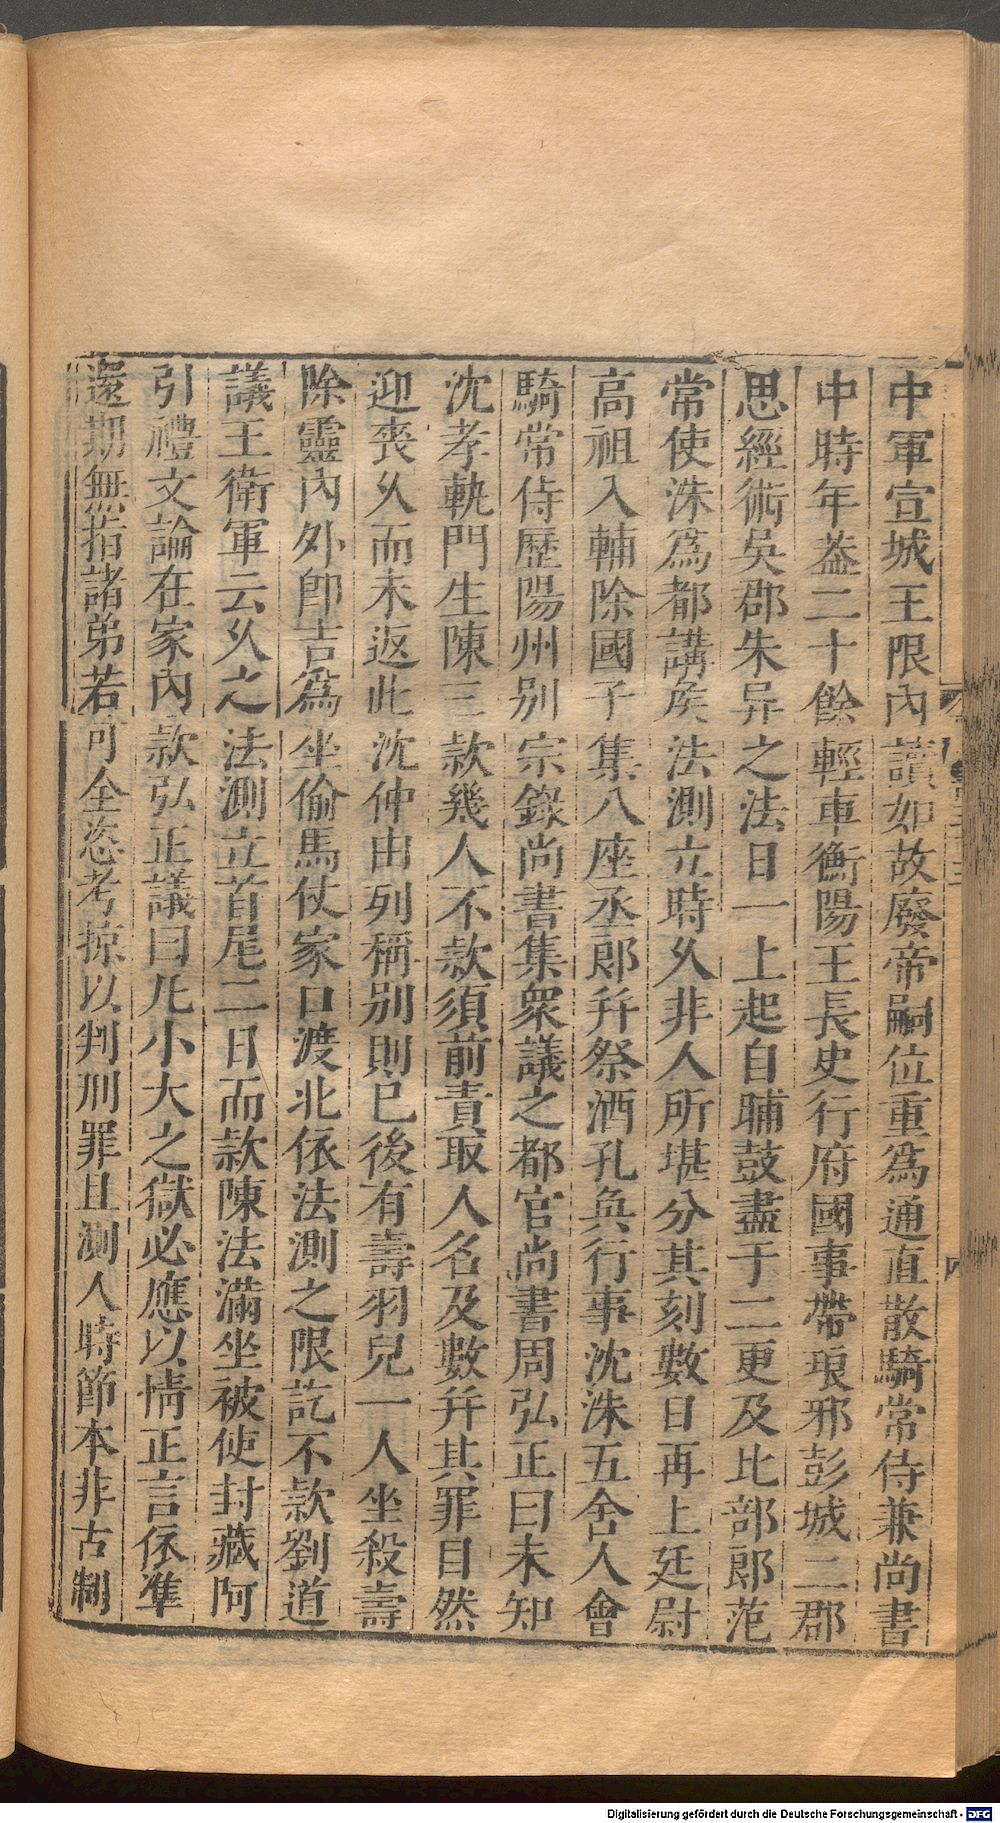 中軍宣城王限內讀如故廢帝嗣位重爲通直散騎常侍兼尚書
中時年葢二十餘輕車衡陽王長史行府國事帶琅邪彭城二郡
思經術吳郡朱异之法日一上起自晡鼓盡于二更及比部郎范
常使洙爲都講矦法測立時乆非人所堪分其刻數日再上廷尉
高祖入輔除國子集八座丞郎幷祭酒孔奐行事沈洙五舍人會
騎常侍歷陽州別宗錄尚書集衆議之都官尚書周弘正曰未知
沈孝軌門生陳三款幾人不款須前責取人名及數幷其罪目然
迎喪乆而未返此沈仲由列稱別則巳後有壽羽兒一人坐殺壽
除靈內外卽吉爲坐偷馬仗家口渡北依法測之限訖不款劉道
議王衛軍云乆之法測立首尾二日而款陳法滿坐被使封藏阿
引禮文論在家內款弘正議曰凡小大之獄必應以情正言依準
還期無指諸弟若可全恣考掠以判刑罪且測人時節本非古制
Digitalisierung gefördert durch die Deutsche Forschungsgemeinschaft - DFG